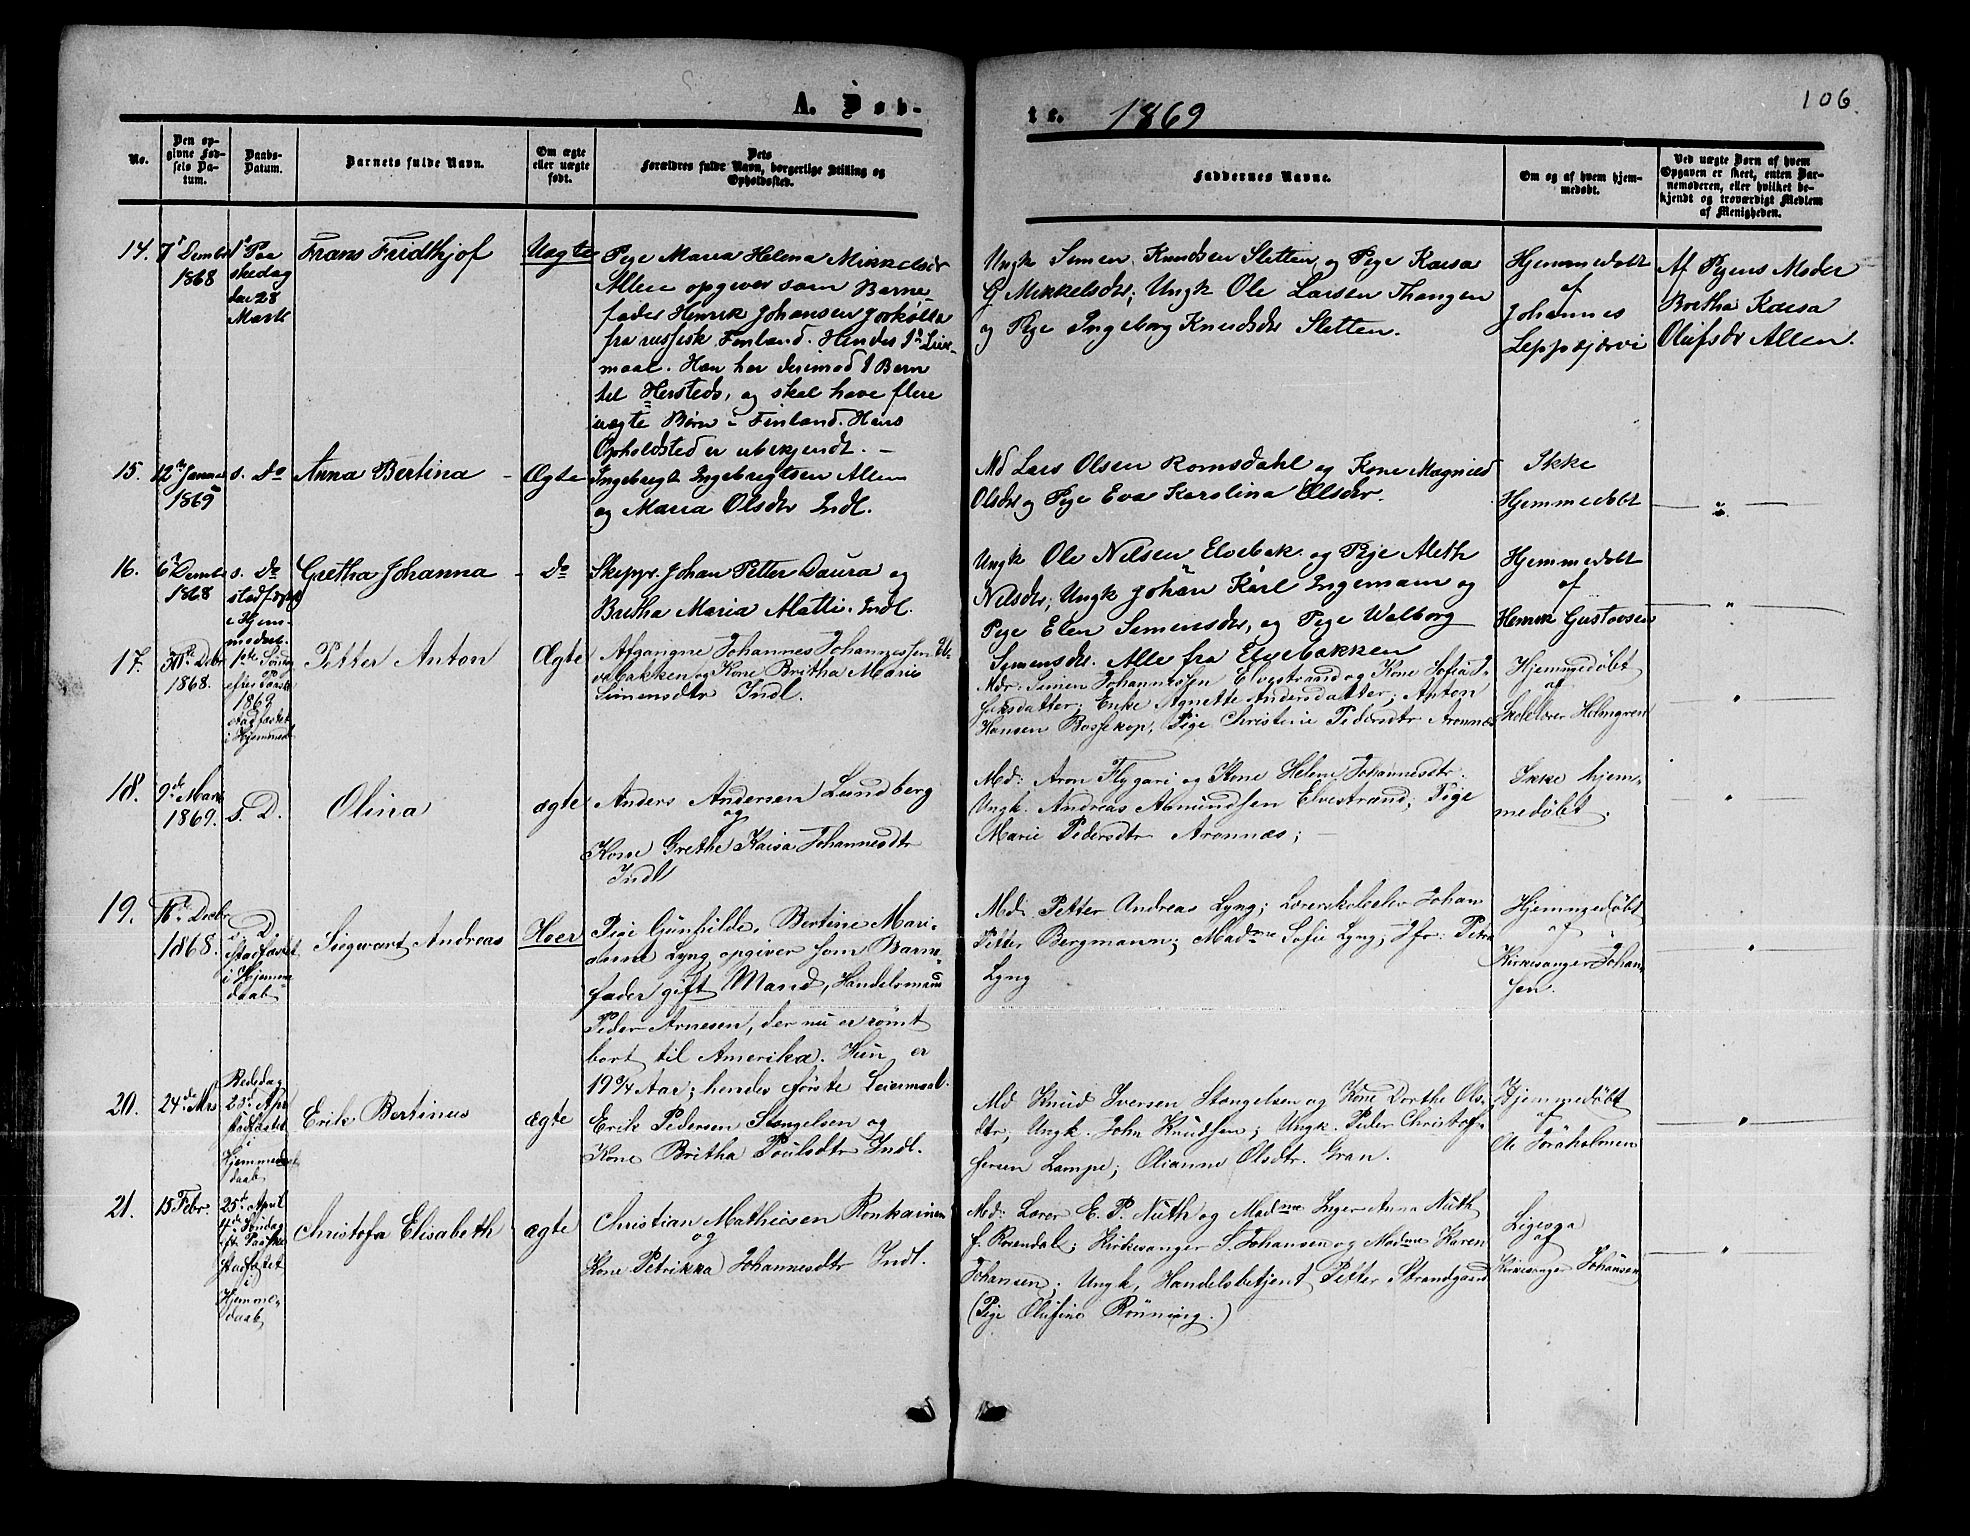 A. Döb-
te. 1869
106
No.
Den op-
givne Föd-
sels Da-
tum.
Daabs-
Datum.
Barnets fulde Navn.
Om ægte
eller uægte
født.
Dets
Forældres fulde Navn, borgerlige Stilling og
Opholdssted.
Faddernes Navne.
Om og af hvem hjem-
medøbt.
Ved uægte Børn af hvem
Opgaven er skeet, enten Bar-
nemoderen, eller hvilket be-
kjendt og troværdigt Medlem
af Menigheden.
14.
7de Dembr
1868
1ste Paa
skedag
den 28
Marts
Frans Fridthjof
Uægte
Pige Maria Helena Mikkelsdr
Alten opgiver som Barne-
fader Henrik Johansen Jorkölla
fra russisk Finland. Hendes 1ste Leier-
maal. Han har derimod 1 Barn
tel Hersteds, og skal have flere
uægte Børn i Finland. Hans
Opholdsted er ubekjendt. -
Ungk Simen Knudsen Sletten og Pige Kaisa
G Mikkelsdr; Ungk Ole Larsen Thangen
og Pige Ingeborg Knudsdr Sletten.
Hjemmedøbt
af
Johannes
Leppæjærvi
Af Pigens Moder
Bretha Kaisa
Olufsdr Alten.
15.
12te Januar
1869
s. Do
Anna Bertina
Ægte
Ingebregt Ingebregtsen Alten
og Maria Olsdr Indl.
Md Lars Olsen Romsdahl og Kone Magnild
Olsdr og Pige Eva Karolina Olsdr.
Ikke
Hjemmedøbt
"
16.
6te Dembr
1868
s. Do
stadfæstet
i Hjem-
medaab.
Gretha Johanna
Do
Skippr. Johan Petter Daura og
Britha Maria Matti. Indl.
Ungk Ole Nilsen Elvebak og Pige Aleth
Nilsdr; Ungk Johan Karl Ingemann og
Pige Elen Simensdr, og Pige Walborg
Simensdr. Alle fra Elvebakken
Hjemmedøbt
af
Henrik Gustavsen
"
17.
30te Debr
1868.
1ste Sönd.
efter Paaske
1869
stadfæstet
i Hjemmed.
Petter Anton
Ægte
Afgangne Johannes Johannessen El-
vebakken og Kone Britha Marie
Simensdtr Indl.
Mdr: Simen Johannessen Elvestrand og Kone Sofia I-
saksdatter; Enke Agnette Andersdatter; Anton
Hansen Bossekop, Pige Christine Pedersdtr Aronnæs
Hjemmedøbt
af
Skolelærer Holmgren
"
18.
9de Marts
1869.
s. D.
Olina
ægte
Anders Andersen Lundberg
og
Kone Grethe Kaisa Johannesdtr
Indl
Md: Aron Flygari og Kone Helene Johannesdtr.
Ungk. Andreas Asmundsen Elvestrand; Pige
Marie Pedersdtr Aronnæs; -
Ikke hjem-
medøbt.
"
19.
Decbr
1868.
s. D.
stadfæstet
i Hjemme-
daab
Siegwart Andreas
Hoer
Pige Gunhilde Bertine Mari-
anne Lyng opgiver som Barne-
fader gift Mand, Handelsmand
Peder Arnesen, der nu er römt
bort til Amerika. Hun er
19 3/4 Aar; hendes første Leiermaal.
Md: Petter Andreas Lyng; Lærerskoleelev Johan
Petter Bergmann; Madme Sofie Lyng, Jfr: Petra
Lyng
Hjemmedøbt
af
Kirkesanger Johan-
sen.
"
20.
24de Mrs
Bededag
23de Apr
stadfæstet
i
Hjemme-
daab
Erik Bertinus
ægte
Erik Pedersen Stengelsen og
Kone Britha Poulsdtr Indl.
Md Knud Iversen Stengelsen og Kone Dorthe Ols-
dtr; Ungk. John Knudsen; Ungk. Peder Christof-
fersen Lampe; Olianne Olsdtr. Gran.
Hjemmedøbt
af
Ole Foraholmen
"
21.
15 Febr.
25de April
4de Søndag
eft. Paaske
stadfæstet
i
Hjemme-
daab
Christofa Elisabeth
ægte
Christian Mathiesen Ronkainen
og
Kone Petrikka Johannesdtr Indl.
Md: Lærer E. P. Nuth og Madme Inger Anna Nuth
f. Rosendal; Kirkesanger S. Johansen og Madme Karen
Johansen; Ungk, Handelsbetjent Petter Strandgaard
(Pige Olufine Rönning.)
Ligesaa
af
Kirkesanger Johansen
"